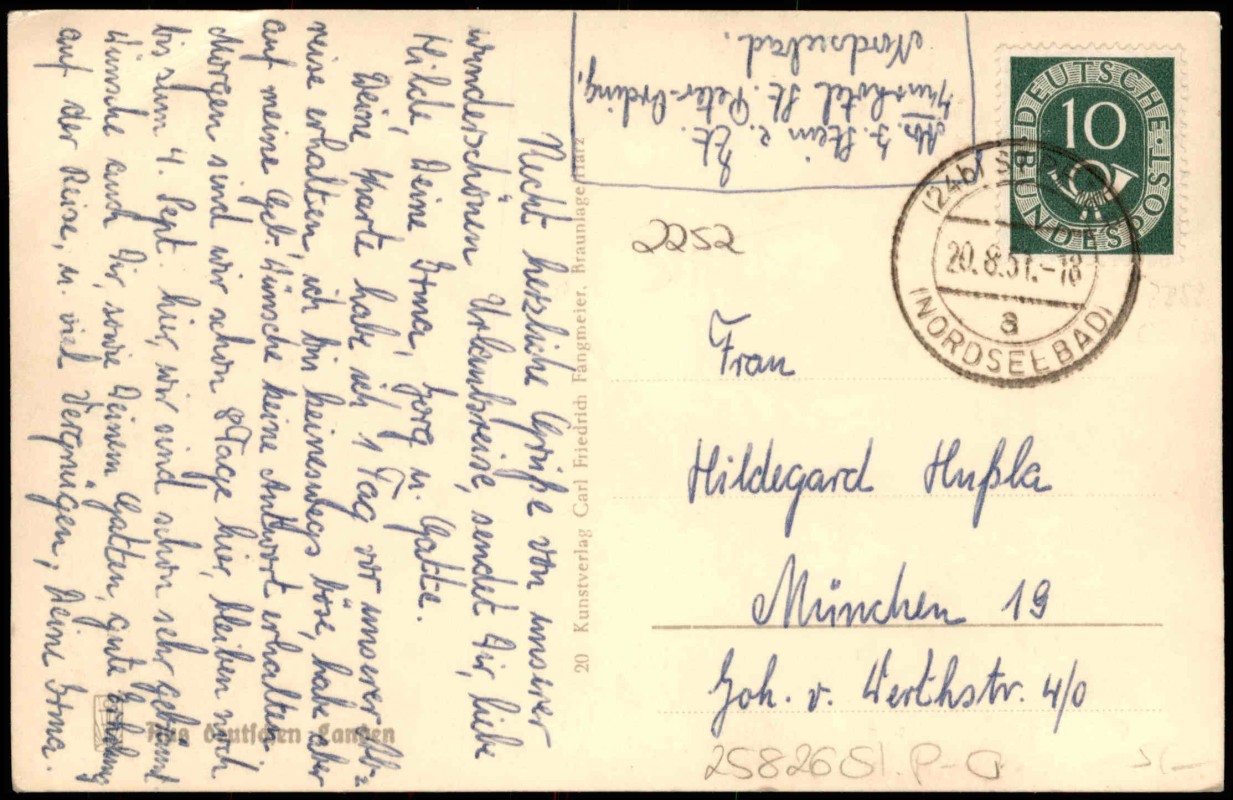 Recht herzliche Grüße von unserer
wunderschönen Urlaubsreise, sendet Dir, liebe
Hilde, Deine Irma, Georg u. Gatte.
Deine Karte habe ich 1 Tag vor unserer Ab-
reise erhalten, ich bin keineswegs böse, habe aber
auf meine Geb. Wünsche keine Antwort erhalten.
Morgen sind wir schon 8 Tage hier, bleiben noch
bis zum 4. Sept. hier, wir sind schon sehr gebräunt.
Wünsche auch Dir, sowie Deinem Gatten, gute Erholung
auf der Reise, u. viel Vergnügen, Deine Irma.
Aus deutschen Landen
20 Kunstverlag Carl Friedrich Fangmeier, Braunlage-Harz
Ab. J. Stein z. Zt.
Kurhotel St. Peter-Ording,
Nordseebad.
DEUTSCHE BUNDESPOST
10
(24b) ST
20.8.51.-18
a
(NORDSEEBAD)
2252
Frau
Hildegard Hußla
München 19
Joh. v. Werthstr. 4/0